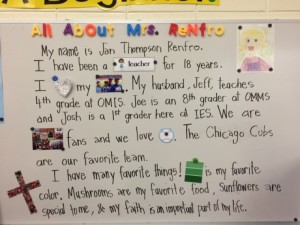 All About Mrs. Renfro
My name is Jan Thompson Renfro.
I have been a teacher for 18 years.
I my . My husband, Jeff, teaches
4th grade at OMIS. Joe is an 8th grader at OMMS
and Josh is a 1st grader here at IES. We are
fans and we love . The Chicago Cubs
are our favorite team.
I have many favorite things! is my favorite
color. Mushrooms are my favorite food, Sunflowers are
special to me, & my faith is an important part of my life.